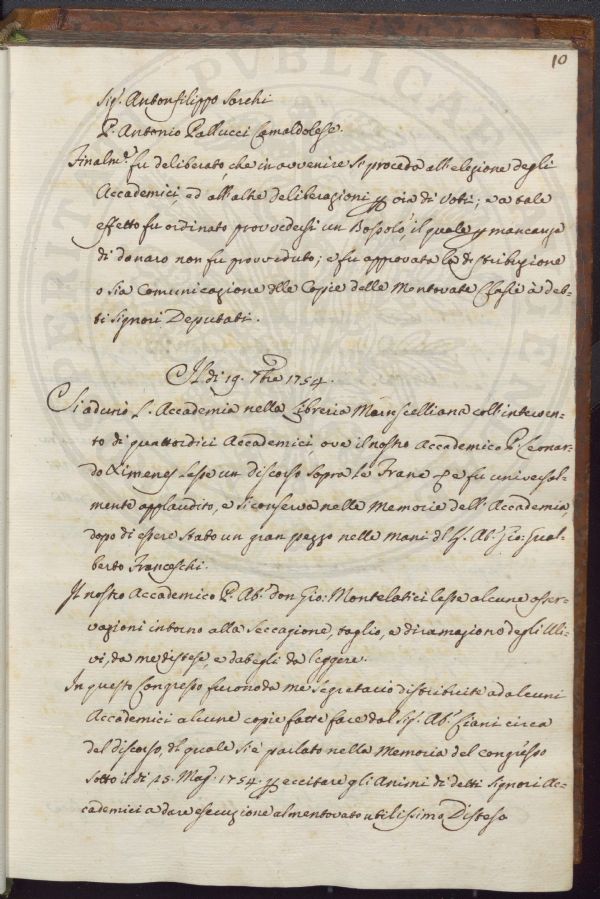 10
Sig.r Antonfilippo Sarchi
P. Antonio Pallucci Camaldolese.
Finalm.e fu deliberato, che in avvenire si proceda all'elezione degli
Accademici, ed all'altre deliberazioni p via di Voti; e a tale
effetto fu ordinato provvedersi un Bossolo, il quale p mancanza
di denaro non fu provveduto; e fu approvata la distribuzione
o sia Comunicazione delle Copie delle mentovate Classi a det-
ti Signori Deputati.
Il di 19. 7bre 1754.
Si adunò l'Accademia nella Libreria Marucelliana coll'interven-
to di quattordici Accademici, ove il nostro Accademico P. Leonar-
do Ximenes lesse un discorso sopra le Frane e fu universal-
mente applaudito, e si conserva nelle Memorie dell'Accademia,
dopo di essere stato un gran pezzo nelle mani del S. Ab. Gio: Gual-
berto Franceschi.
Il nostro Accademico P. Ab. don Gio: Montelatici lesse alcune osser-
vazioni intorno alla seccagione, taglio, e diramazione degli Uli-
vi, da me distese, e dategli da leggere.
In questo Congresso furono da me Segretario distribuite ad alcuni
Accademici alcune copie fatte fare dal Sig. Ab. Ciani circa
del discorso, di quale si è parlato nella Memoria del congresso
sotto il di 15. Mag. 1754. p eccitare gli Animi di detti Signori Ac-
cademici a dare esecuzione al mentovato utilissimo Disteso